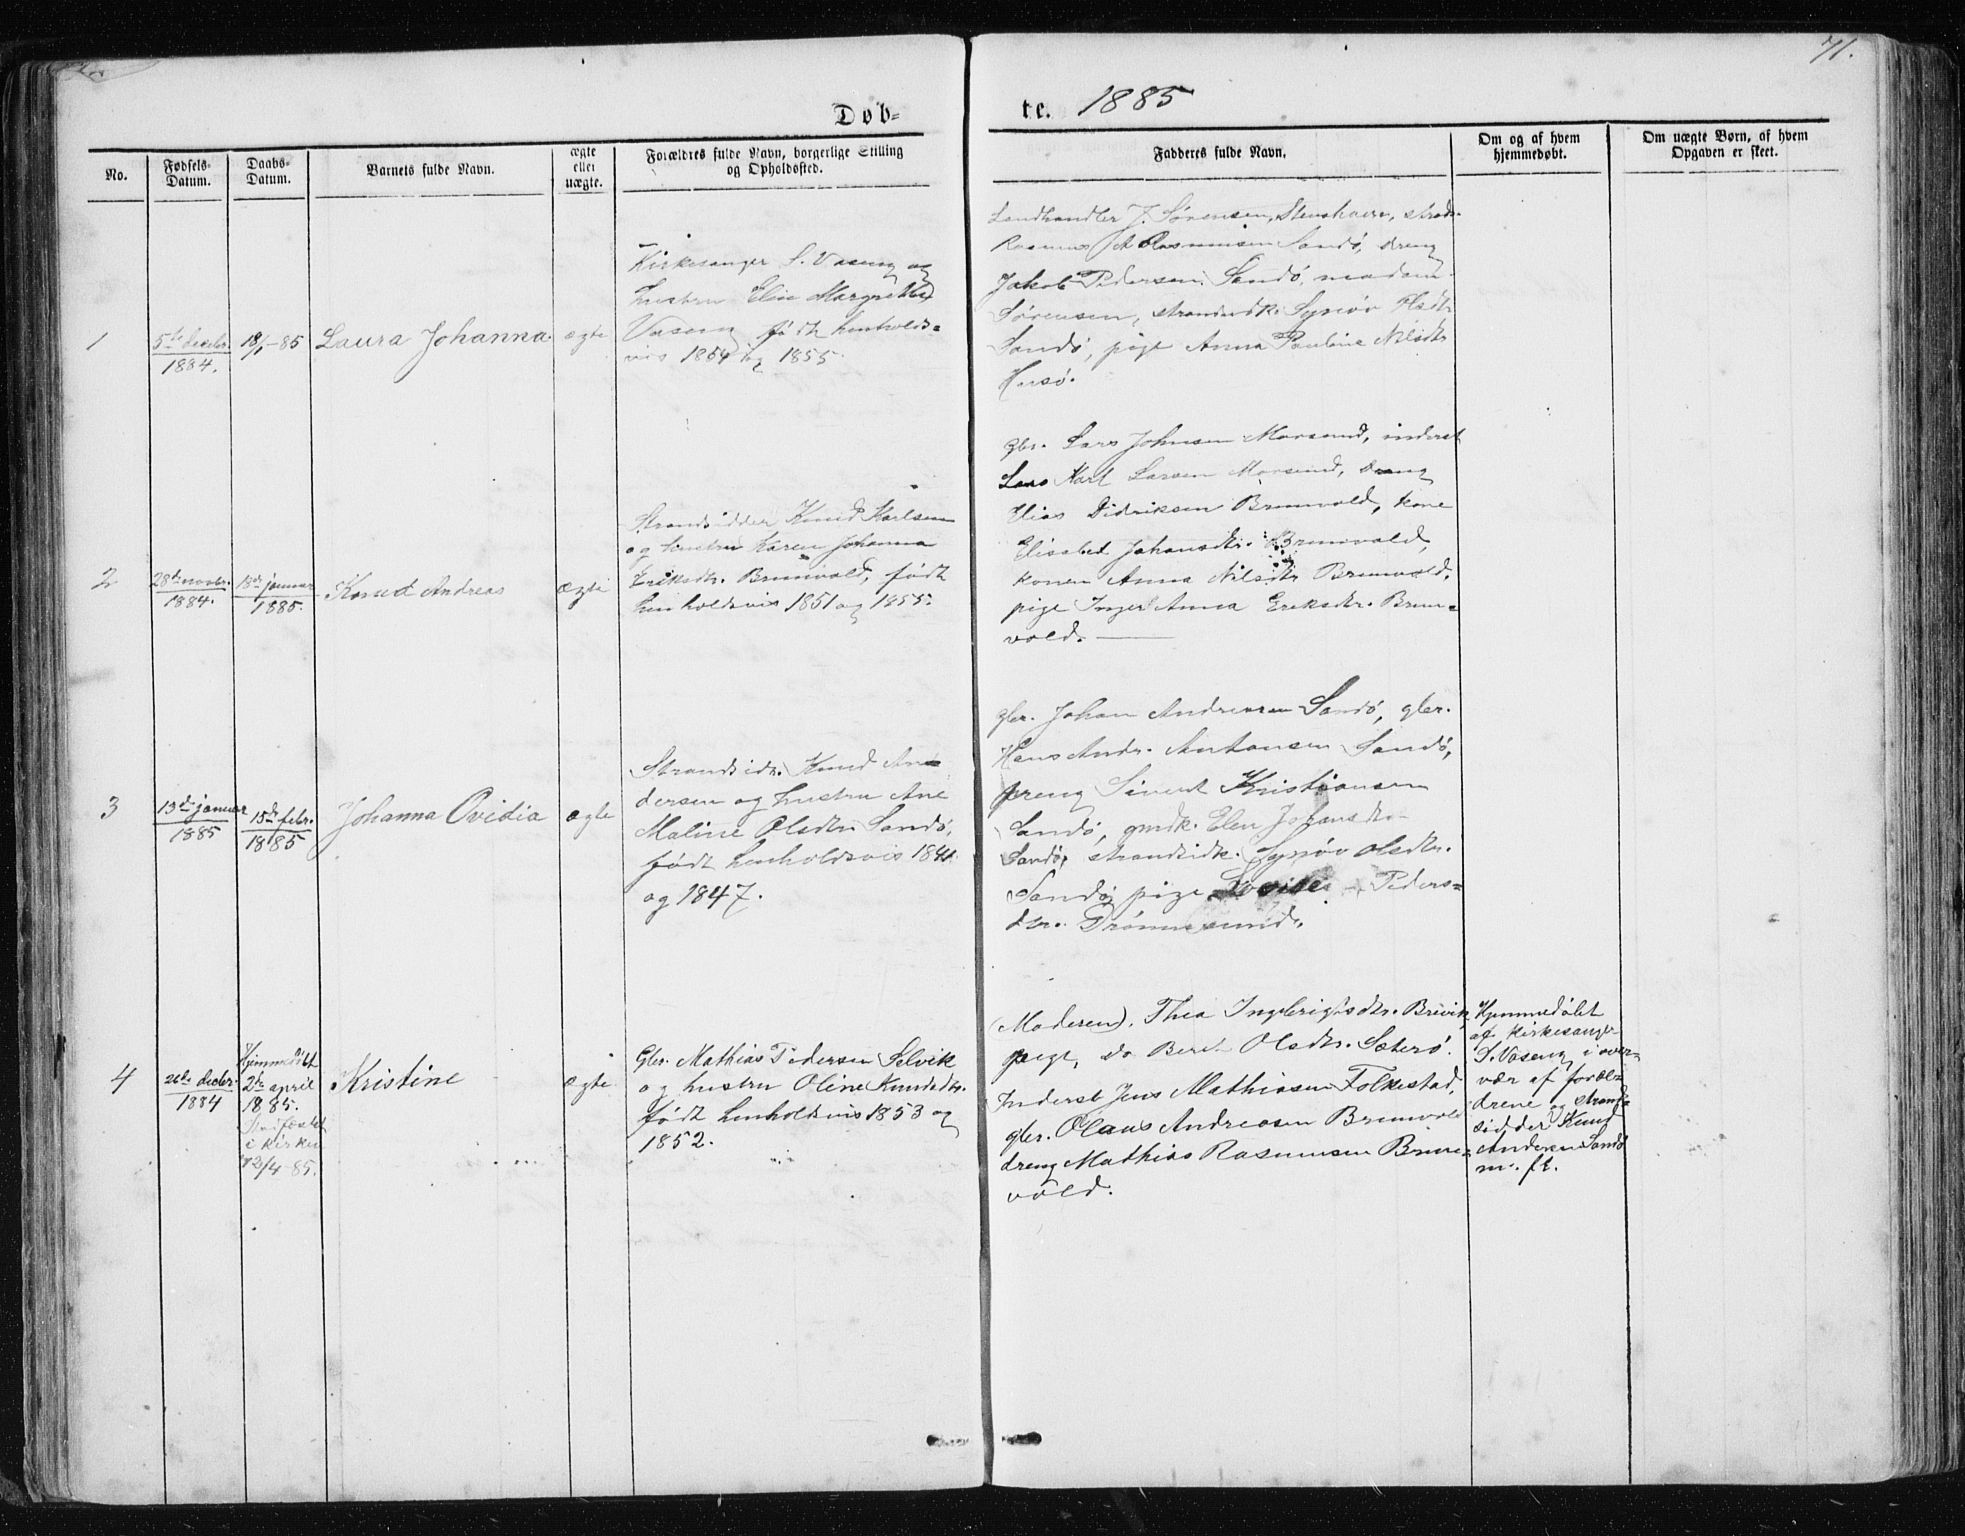 71.
Døb= te. 1885
No.
Fødsels-
Datum.
Daabs-
Datum.
Barnets fulde Navn.
ægte
eller
uægte.
Forældres fulde Navn, borgerlige Stilling
og Opholdssted.
Fadderes fulde Navn.
Om og af hvem
hjemmedøbt.
Om uægte Børn, af hvem
Opgaven er skeet.
1
5te decbr.
1884.
18/1-85
Laura Johanna
ægte
Kirkesanger S. Vaseng og
hustru Elin Margrethe
Vaseng, født henholds=
vis 1854 og 1855.
Landhandler J. Sørensen, Stenshavn, strds.
Rasmus A Rasmussen Sandø, dreng
Jakob Pedersen Sandø, madam
Sørensen, strandsdk. Synnøv Olsdtr.
Sandø, pige Anna Pauline Nilsdtr
Husø.
2
28de novbr.
1884.
18de januar
1885.
Knud Andreas
ægte
Strandsidder Knud Karlsen
og hustru Karen Johanna
Eriksdtr. Brunvold, født
henholdsvis 1851 og 1855.
gbr. Lars Johnsen Morsund, inderst
Lars Karl Larsen Morsund, dreng
Elias Didriksen Brunvold, kone
Elisabet Johansdtr. Brunvold,
konen Anna Nilsdtr Brunvold,
pige Inger Anna Eriksdtr. Brun=
vold.
3
13de januar
1885
15de febr.
1885
Johanna Ovidia
ægte
Strandsidr. Knud An=
dersen og hustru Ane
Maline Olsdtr. Sandø,
født henholdsvis 1841
og 1847.
gbr. Johan Andreasen Sandø, gbr.
Hans Andr. Antonsen Sandø,
dreng Sivert Kristiansen
Sandø, gmdk. Elen Johansdtr
Sandø, strandsidk. Synnøv Olsdtr.
Sandø, pige Lovise Peders=
dtr. Drømmesund.
4
26de decbr.
1884
Hjemmedøbt
2de april
1885.
Stadfæstet
i kirken
12/4-85.
Kristine
ægte
Gbr. Mathias Pedersen Selvik
og hustru Oline Knudsdtr.
født henholdsvis 1853 og
1852.
(Moderen). Thea Ingebrigtsdtr. Brevik
pige, do Beret Olsdtr. Sæterø.
Inderst Jens Mathiasen Folkestad,
gbr. Olaus Andreasen Brunvold
dreng Mathias Rasmussen Brun=
vold.
Hjemmedøbt
af kirkesanger
S. Vaseng i over=
vær af foræl=
drene og strand=
sidder Knud
Andersen Sandø
m. fl.